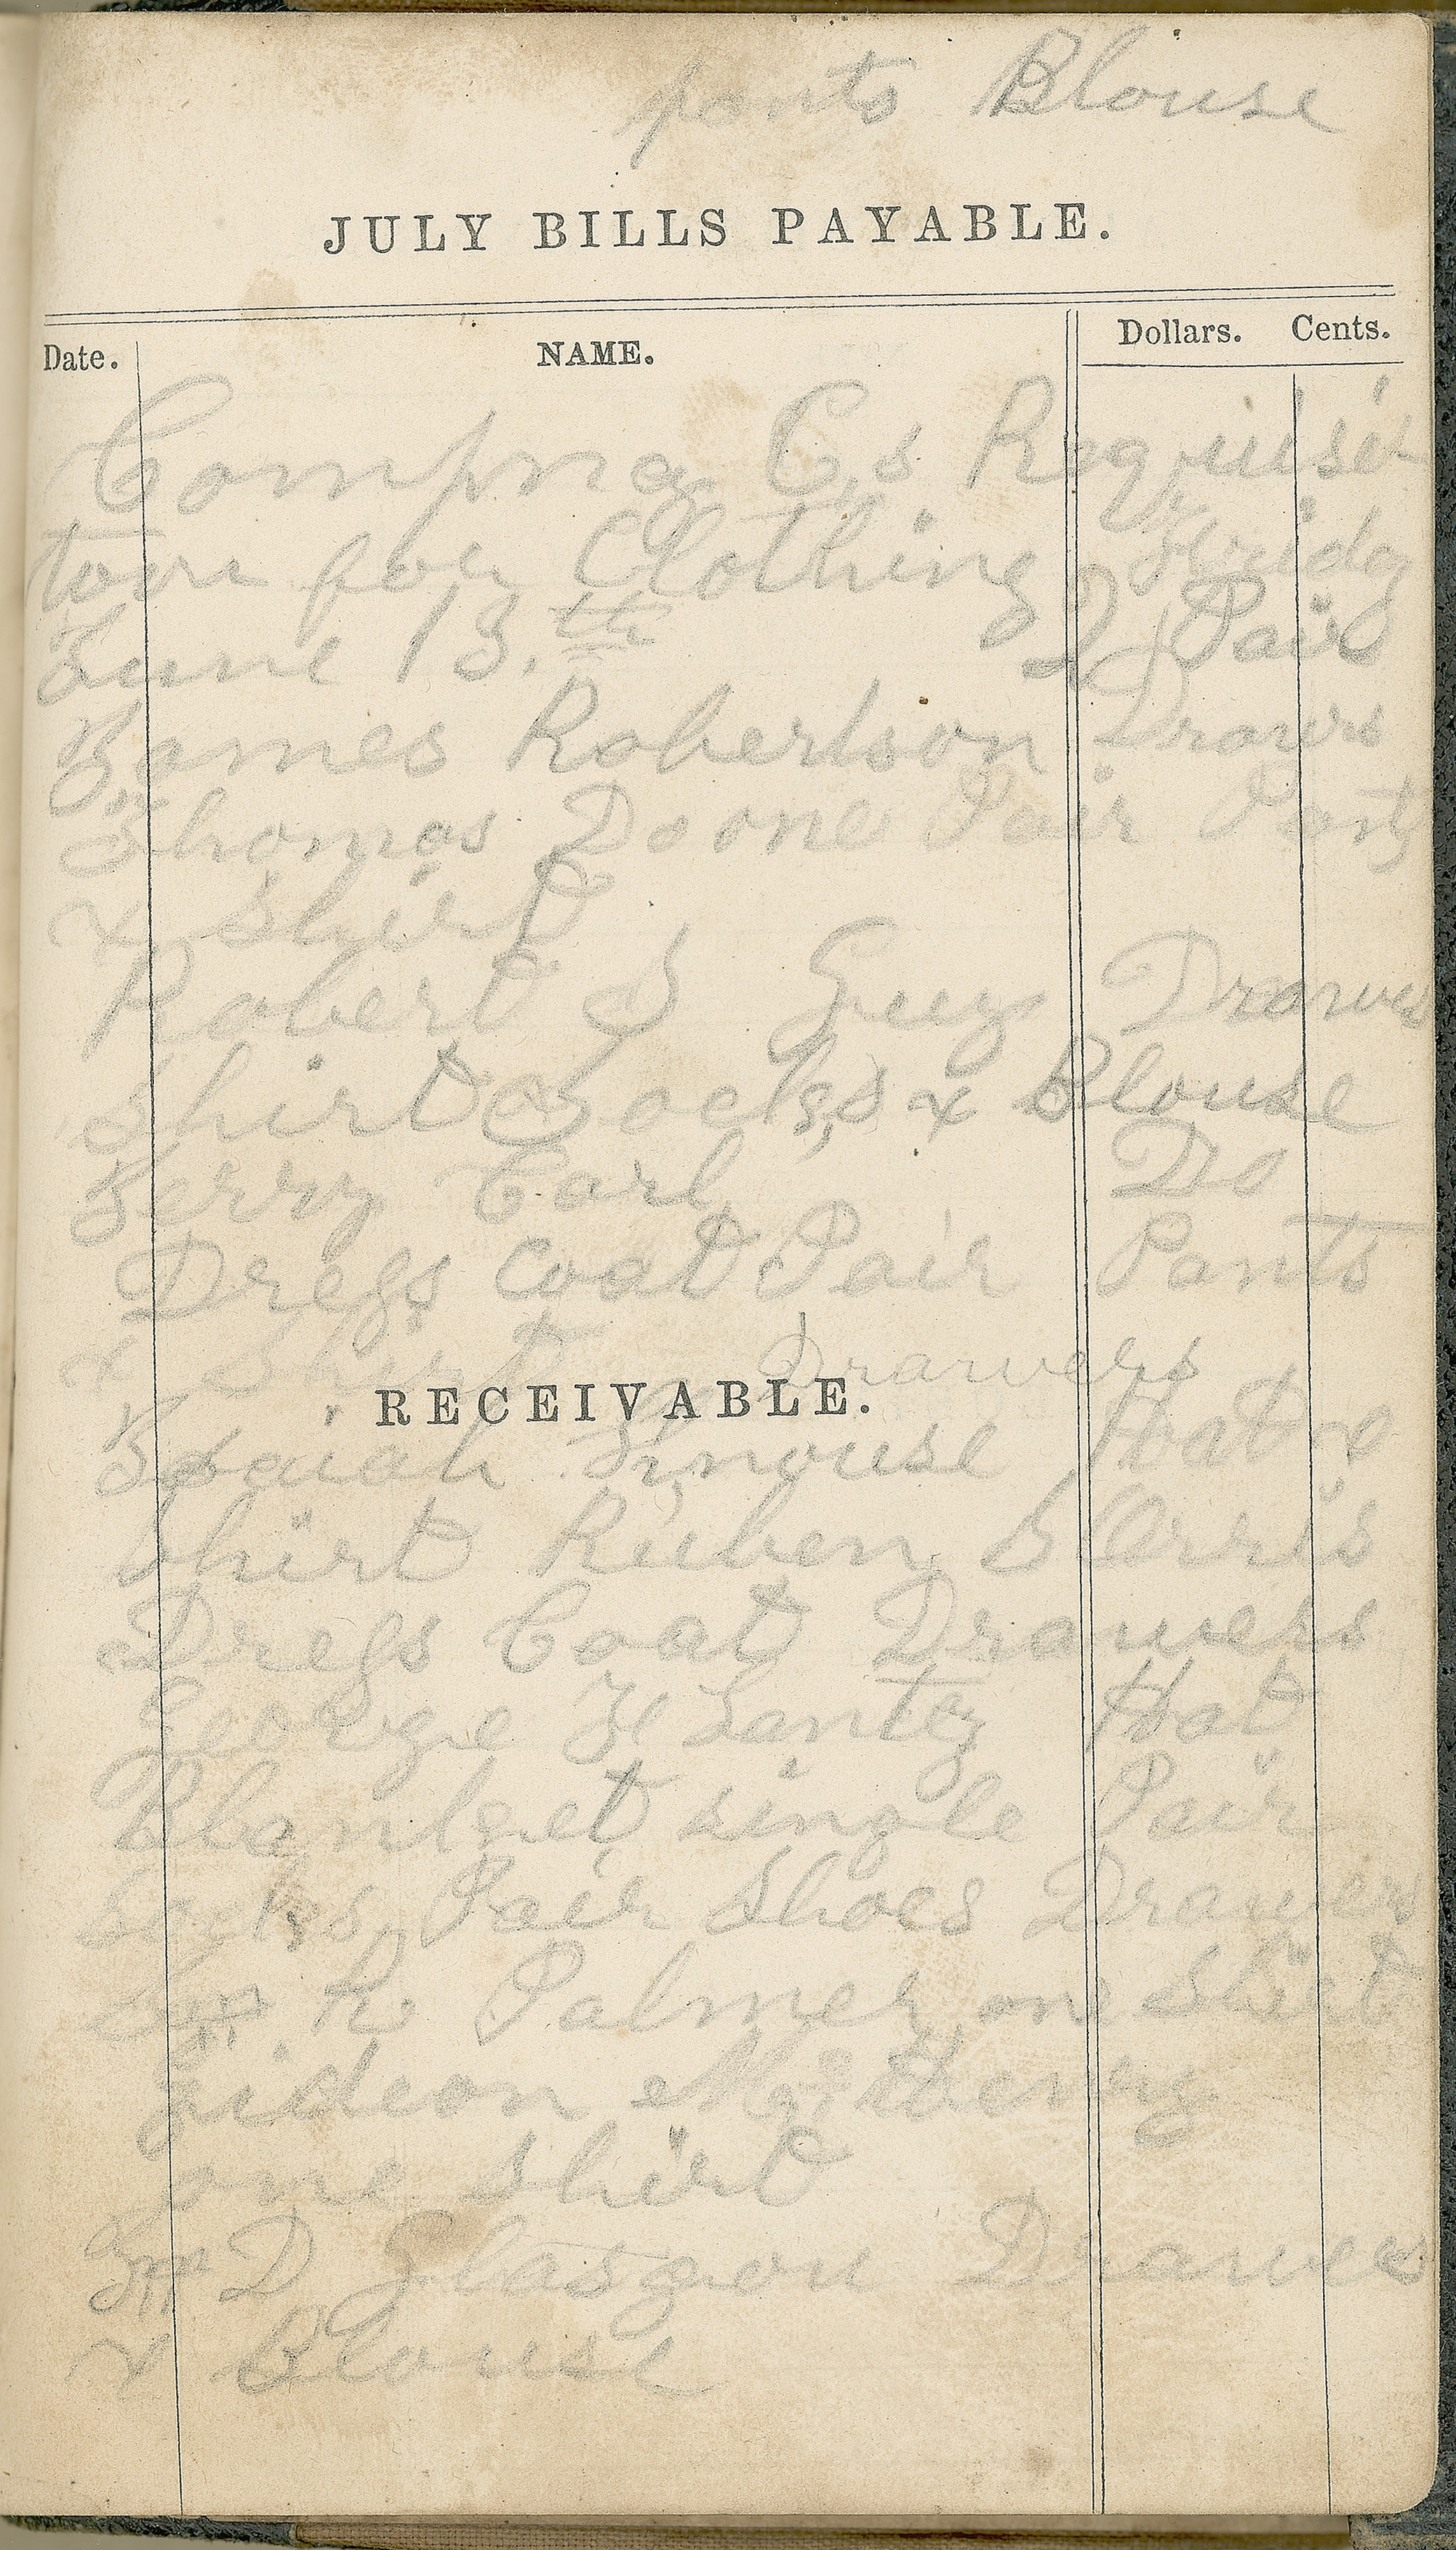 pants Blouse
JULY BILLS PAYABLE.
Date. NAME. Dollars. Cents.
Compna C,s Requisi
tion for Clothing Friday
June 13.th 2 Pair
James Robertson Drawrs
Thomas Doone Pair Pants
& Shirt
Robert S Guy Drawes
Shirt Socks & Blouse
Jerry Carl Do
Dress Coat Pair Pants
& Shirt Drawers
RECEIVABLE.
Isaiah Hat &
Shirt Ruben
Dress Coat Drawers
George H Lantz Hat
Blanket single Pair
Socks Pair Shoes Drawers
R Palmer one Shirt
Gideon
one Shirt
D Glasgow Drawes
& Blouse